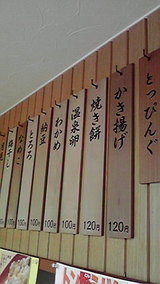 とっぴんぐ
かき揚げ
120円
焼き餅
120円
温泉卵
100円
わかめ
100円
納豆
100円
とろろ
100円
なめこ
100円
梅干し